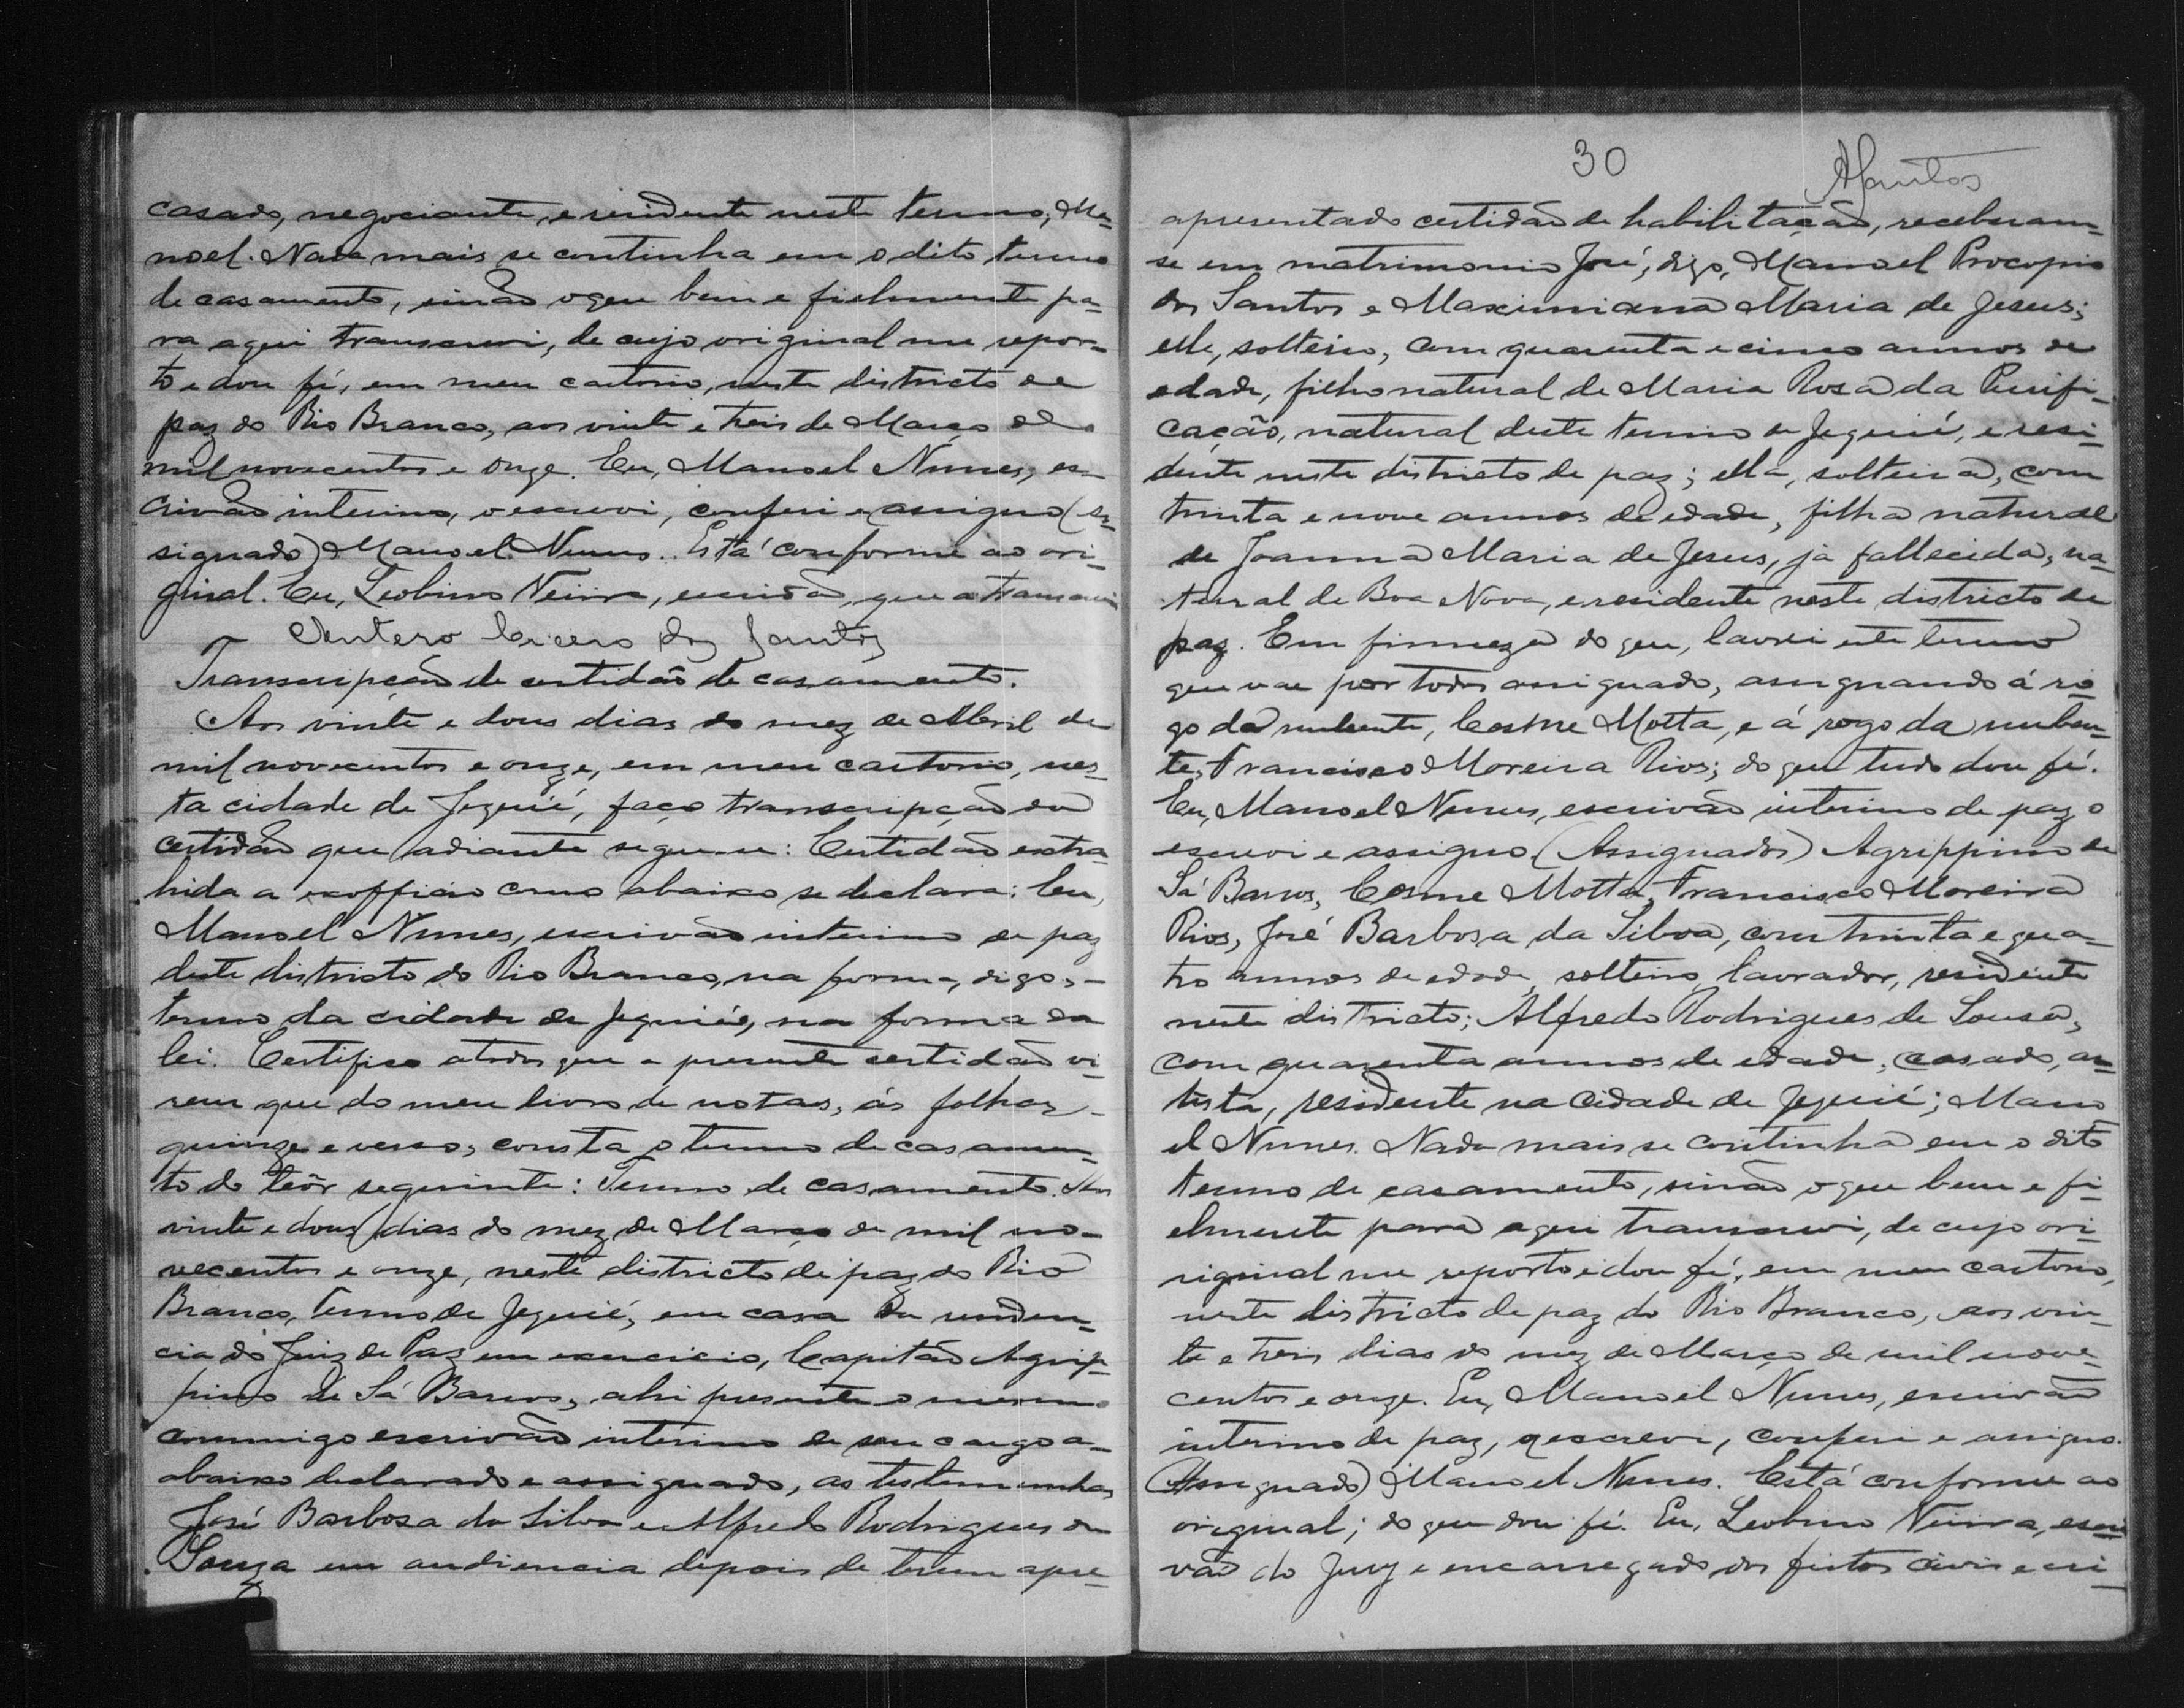 casado, negociante, e residente neste termo; Ma-
noel. Nada mais se continha em o dito termo
de casamento, sinão o que bem e fielmente pa-
ra aqui transcrevi, de cujo original me repor-
to e dou fé, em meu cartorio, neste districto de
paz do Rio Branco, aos vinte e treis de Março de
mil novecentos e onze. Eu, Manoel Nunes, es-
crivão interino, o escrevi, conferi e assigno (as-
signado) Manoel Nunes. Está conforme ao ori-
ginal. Eu, Leobino Neiva, escrivão, que a transcrevi
Antero Cicero dos Santos
Transcripcão de certidão de casamento.
Aos vinte e dous dias do mez de Abril de
mil novecentos e onze, em meu cartorio, nes-
ta cidade de Jequié, faço transcripção da
certidão que adiante segue-se: Certidão extra-
hida a exofficio como abaixo se declara: Eu,
Manoel Nunes, escrivão interino de paz
deste districto do Rio Branco, na forma, digo, -
termo da cidade de Jequié, na forma da
lei. Certifico a todos que a presente certidão vi-
rem que do meu livro de notas, ás folhas -
quinze e verso, consta o termo de casamen-
to do teôr seguinte: Termo de casamento. Aos
vinte e dous dias do mez de Março de mil no-
vecentos e onze, neste districto de paz do Rio
Branco, termo de Jequié, em casa da residen-
cia do Juiz de Paz em exercicio, Capitão Agrip-
pino de Sá Barros, ahi presente o mesmo
commigo escrivão interino de seu cargo a-
abaixo declarado e assignado, as testemunhas
José Barbosa da Silva e Alfredo Rodrigues de
Souza em audiencia depois de terem apre-
30
ASantos
apresentado certidão de habilitação, receberam-
se em matrimonio José, digo, Manoel Procopio
dos Santos e Maximiana Maria de Jesus;
elle, solteiro, com quarenta e cinco annos de
edade, filho natural de Maria Rosa da Purifi-
cação, natural deste termo de Jequié, e resi-
dente neste districto de paz; ella, solteira, com
trinta e nove annos de edade, filha natural
de Joanna Maria de Jesus, já fallecida, na-
tural de Boa Nova, e residente neste districto de
paz. Em firmeza do que, lavrei este termo
que vae por todos assignado, assignando á ro-
go do nubente, Cosme Motta, e á rogo da nuben-
te, Francisco Moreira Rios; do que tudo dou fé.
Eu, Manoel Nunes, escrivão interino de paz o
escrevi e assigno (Assignados) Agrippino de
Sá Barros, Cosme Motta, Francisco Moreira
Rios, José Barbosa da Silva, com trinta e qua-
tro annos de edade, solteiro, lavrador, residente
neste districto; Alfredo Rodrigues de Sousa,
com quarenta annos de edade, casado, ar-
tista, residente na cidade de Jequié; Mano
el Nunes. Nada mais se continha em o dito
termo de casamento, sinão o que bem e fi-
elmente para aqui transcrevi, de cujo ori-
riginal me reporto e dou fé, em meu cartorio,
neste districto de paz do Rio Branco, aos vin-
te e treis dias do mez de Março de mil nove-
centos e onze. Eu, Manoel Nunes, escrivão
interino de paz, o escrevi, conferi e assigno.
(Assignado) Manoel Nunes. Está conforme ao
original; do que dou fé. Eu, Leobino Neiva, escri-
vão do Jury e encarregado dos feitos civis e cri-